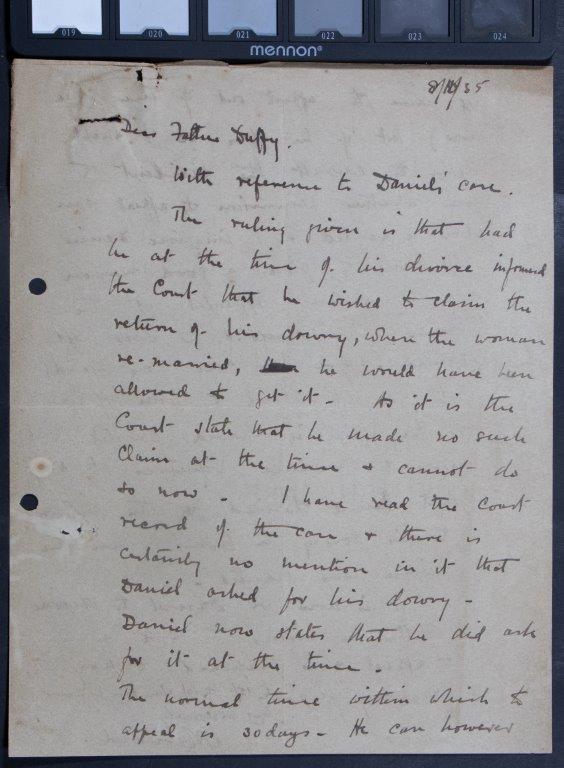 019 020 021 022 023 024
mennon
Dear Father Duffy.
With reference to Daniel's case.
The ruling given is that had
he at the time of his divorce informed
the Court that he wished to claim the
return of his dowry, when the woman
re-married, he would have been
allowed to get it - As it is the
Court state that he made no such
Claim at the time & cannot do
so now - I have read the Court
record of the case & there is
certainly no mention in it that
Daniel asked for his dowry -
Daniel now states that he did ask
for it at the time.
The normal time within which to
appeal is 30 days - He can however